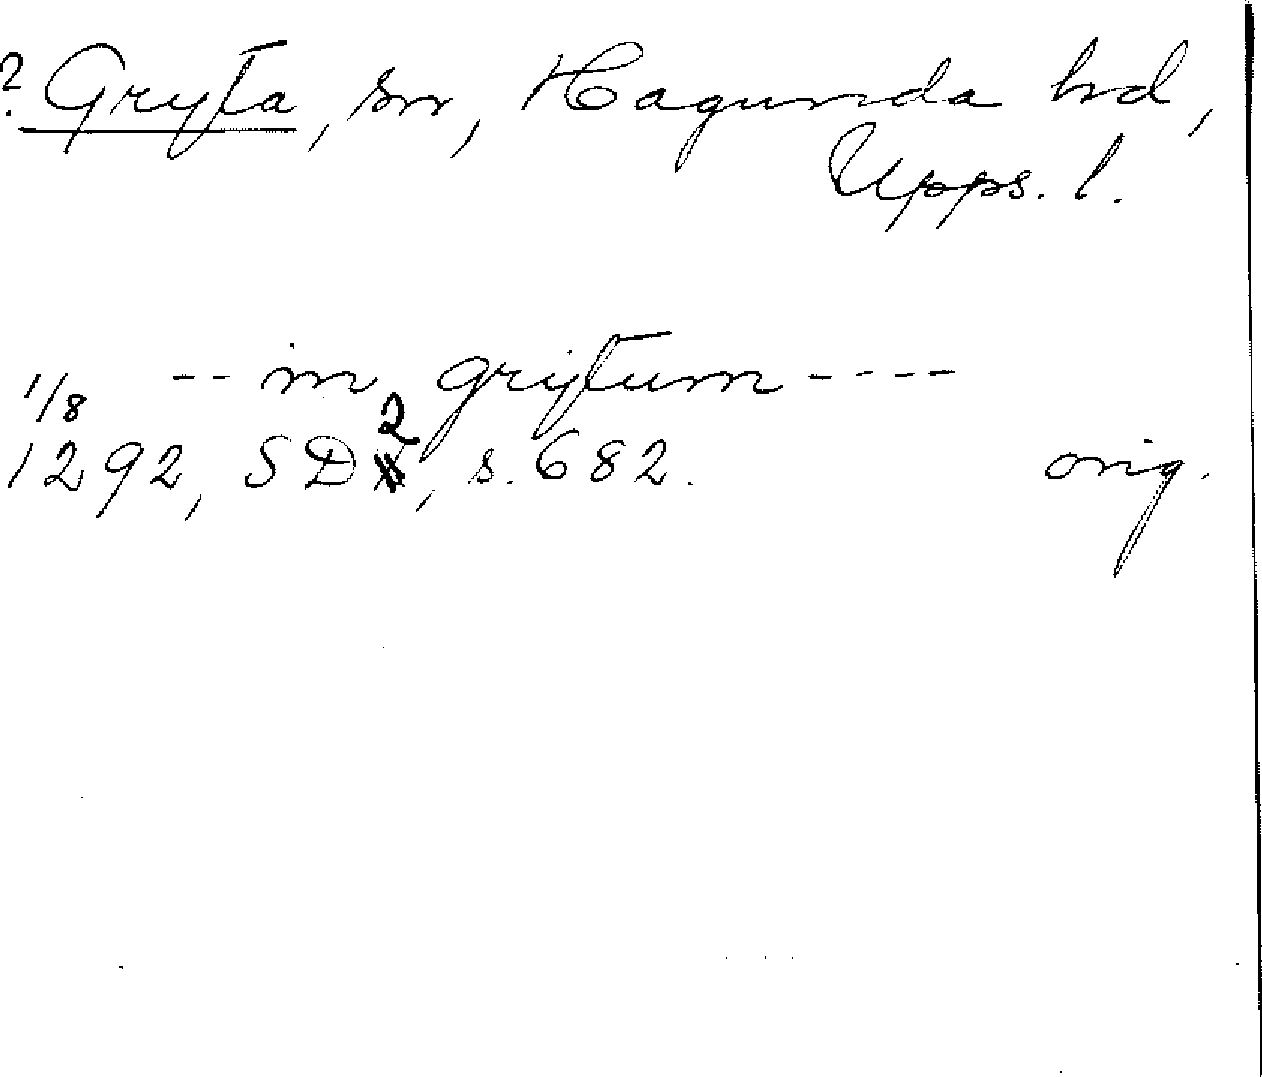 ? Gryta, sn, Hagunda hd,
Upps. l.
-- in grytum ----
1/8
1292, SD 2, s. 682. orig.